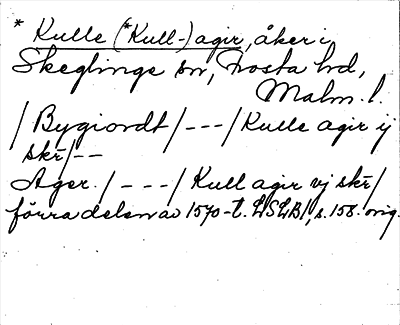 * Kulle (*Kull-)agir, åker i
Skeglinge sn, Frosta hd,
Malm. l.
/ Bygiordt / --- / Kulle agir ij
skr̄/--
Ager. / --- / Kull agir vj skr̄/
förra delen av 1570-t. LSLB1, s. 158. orig.